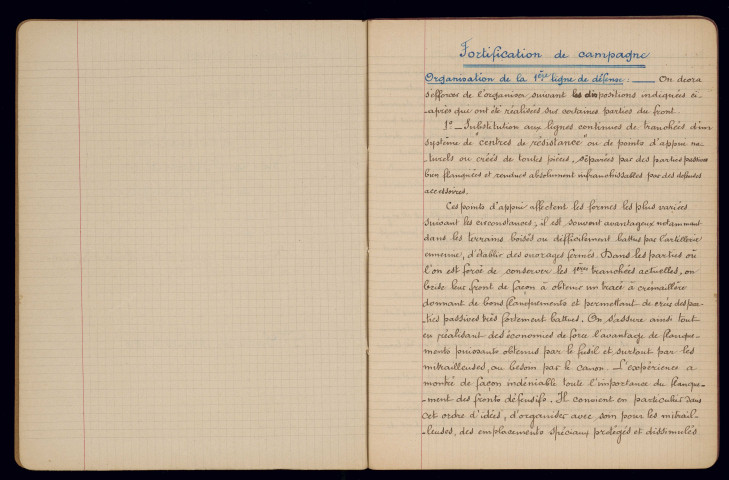 Fortification de campagne
Organisation de la 1ère ligne de défense : — On devra
s'efforcer de l'organiser, suivant les dispositions indiquées ci-
après qui ont été réalisées sur certaines parties du front.
1º — Substitution aux lignes continues de tranchées d'un
système de "centres de résistance" ou de points d'appui na-
turels ou créés de toutes pièces, séparées par des parties passives
bien flanquées et rendues absolument infranchissables par des défenses
accessoires.
Ces points d'appui affectent les formes les plus variées
suivant les circonstances ; il est souvent avantageux notamment
dans les terrains boisés ou difficilement battus par l'artillerie
ennemie, d'établir des ouvrages fermés. Dans les parties où
l'on est forcé de conserver les 1ères tranchées actuelles, on
brise leur front de façon à obtenir un tracé à crémaillère
donnant de bons flanquements et permettant de créer des par-
ties passives très fortement battues. On s'assure ainsi tout
en réalisant des économies de force l'avantage de flanque-
ments puissants obtenus par le fusil et surtout par les
mitrailleuses, au besoin par le canon. L'expérience a
montré de façon indéniable toute l'importance du flanque-
ment des fronts défensifs. Il convient en particulier dans
cet ordre d'idées, d'organiser avec soin pour les mitrail-
leuses, des emplacements spéciaux protégés et dissimulés